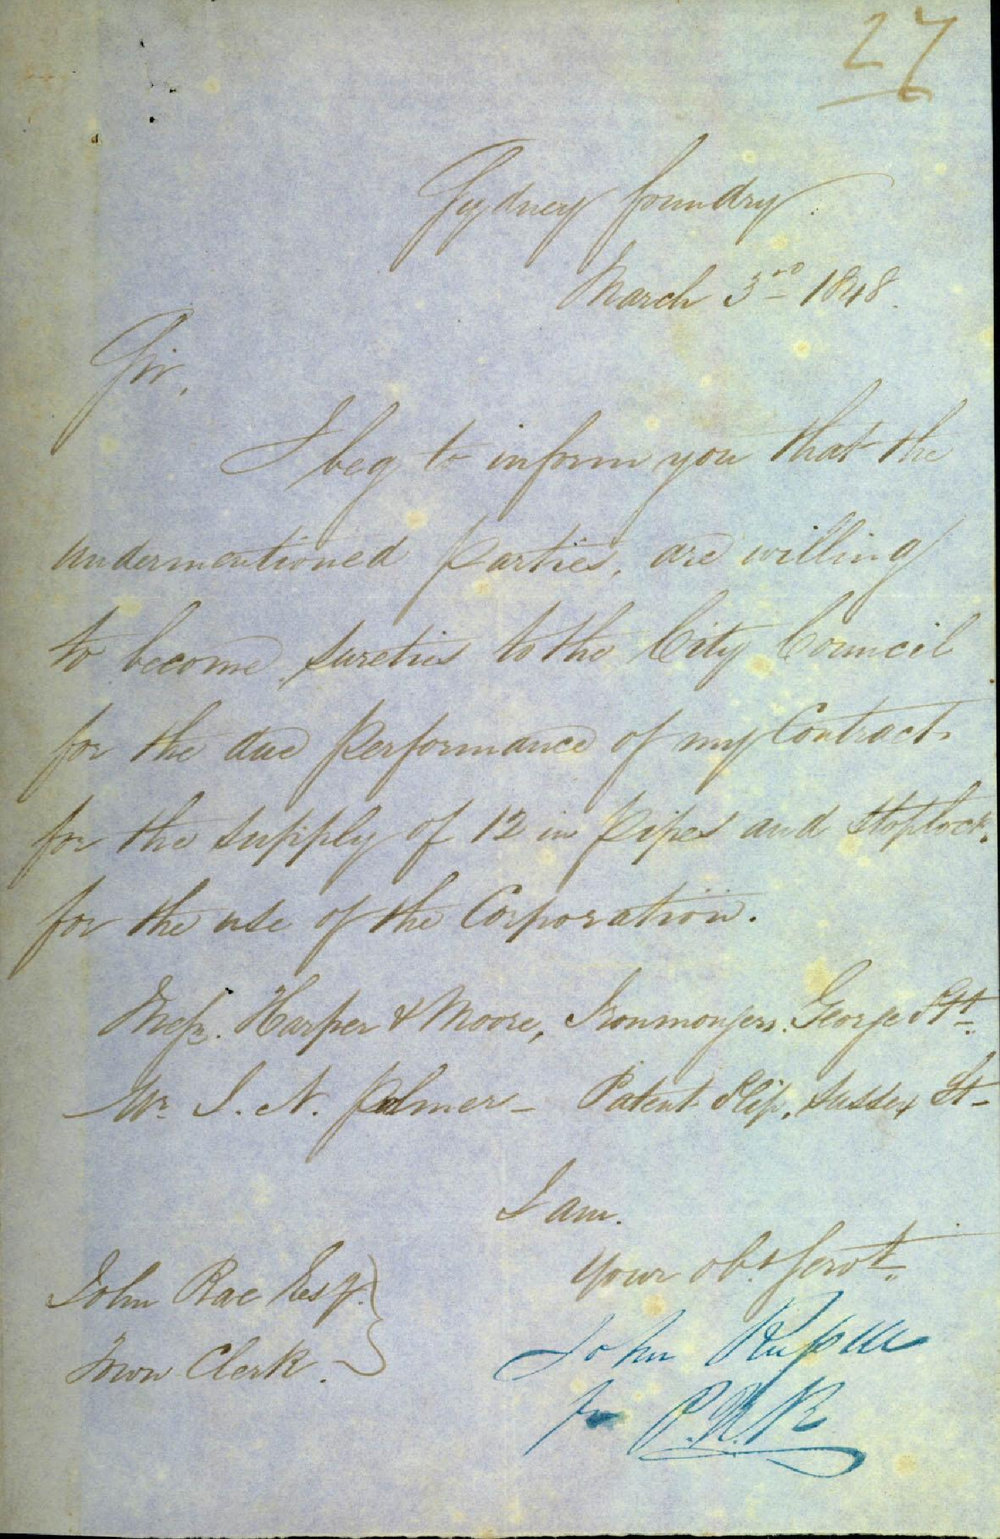 27
Sydney foundry
March 3rd 1848.
Sir,
I beg to inform you that the
undermentioned parties, are willing
to become sureties to the City Council
for the due performance of my Contract
for the supply of 12 in pipes and Stoplock,
for the use of the Corporation.
Messrs. Harper & Moore, Ironmongers. George Stt
Mr J. N. Palmer - Patent Slip, Sussex St -
I am.
Your obt. Servt.
John Rae Esq.
Town Clerk.
John Russell
for P. N. R